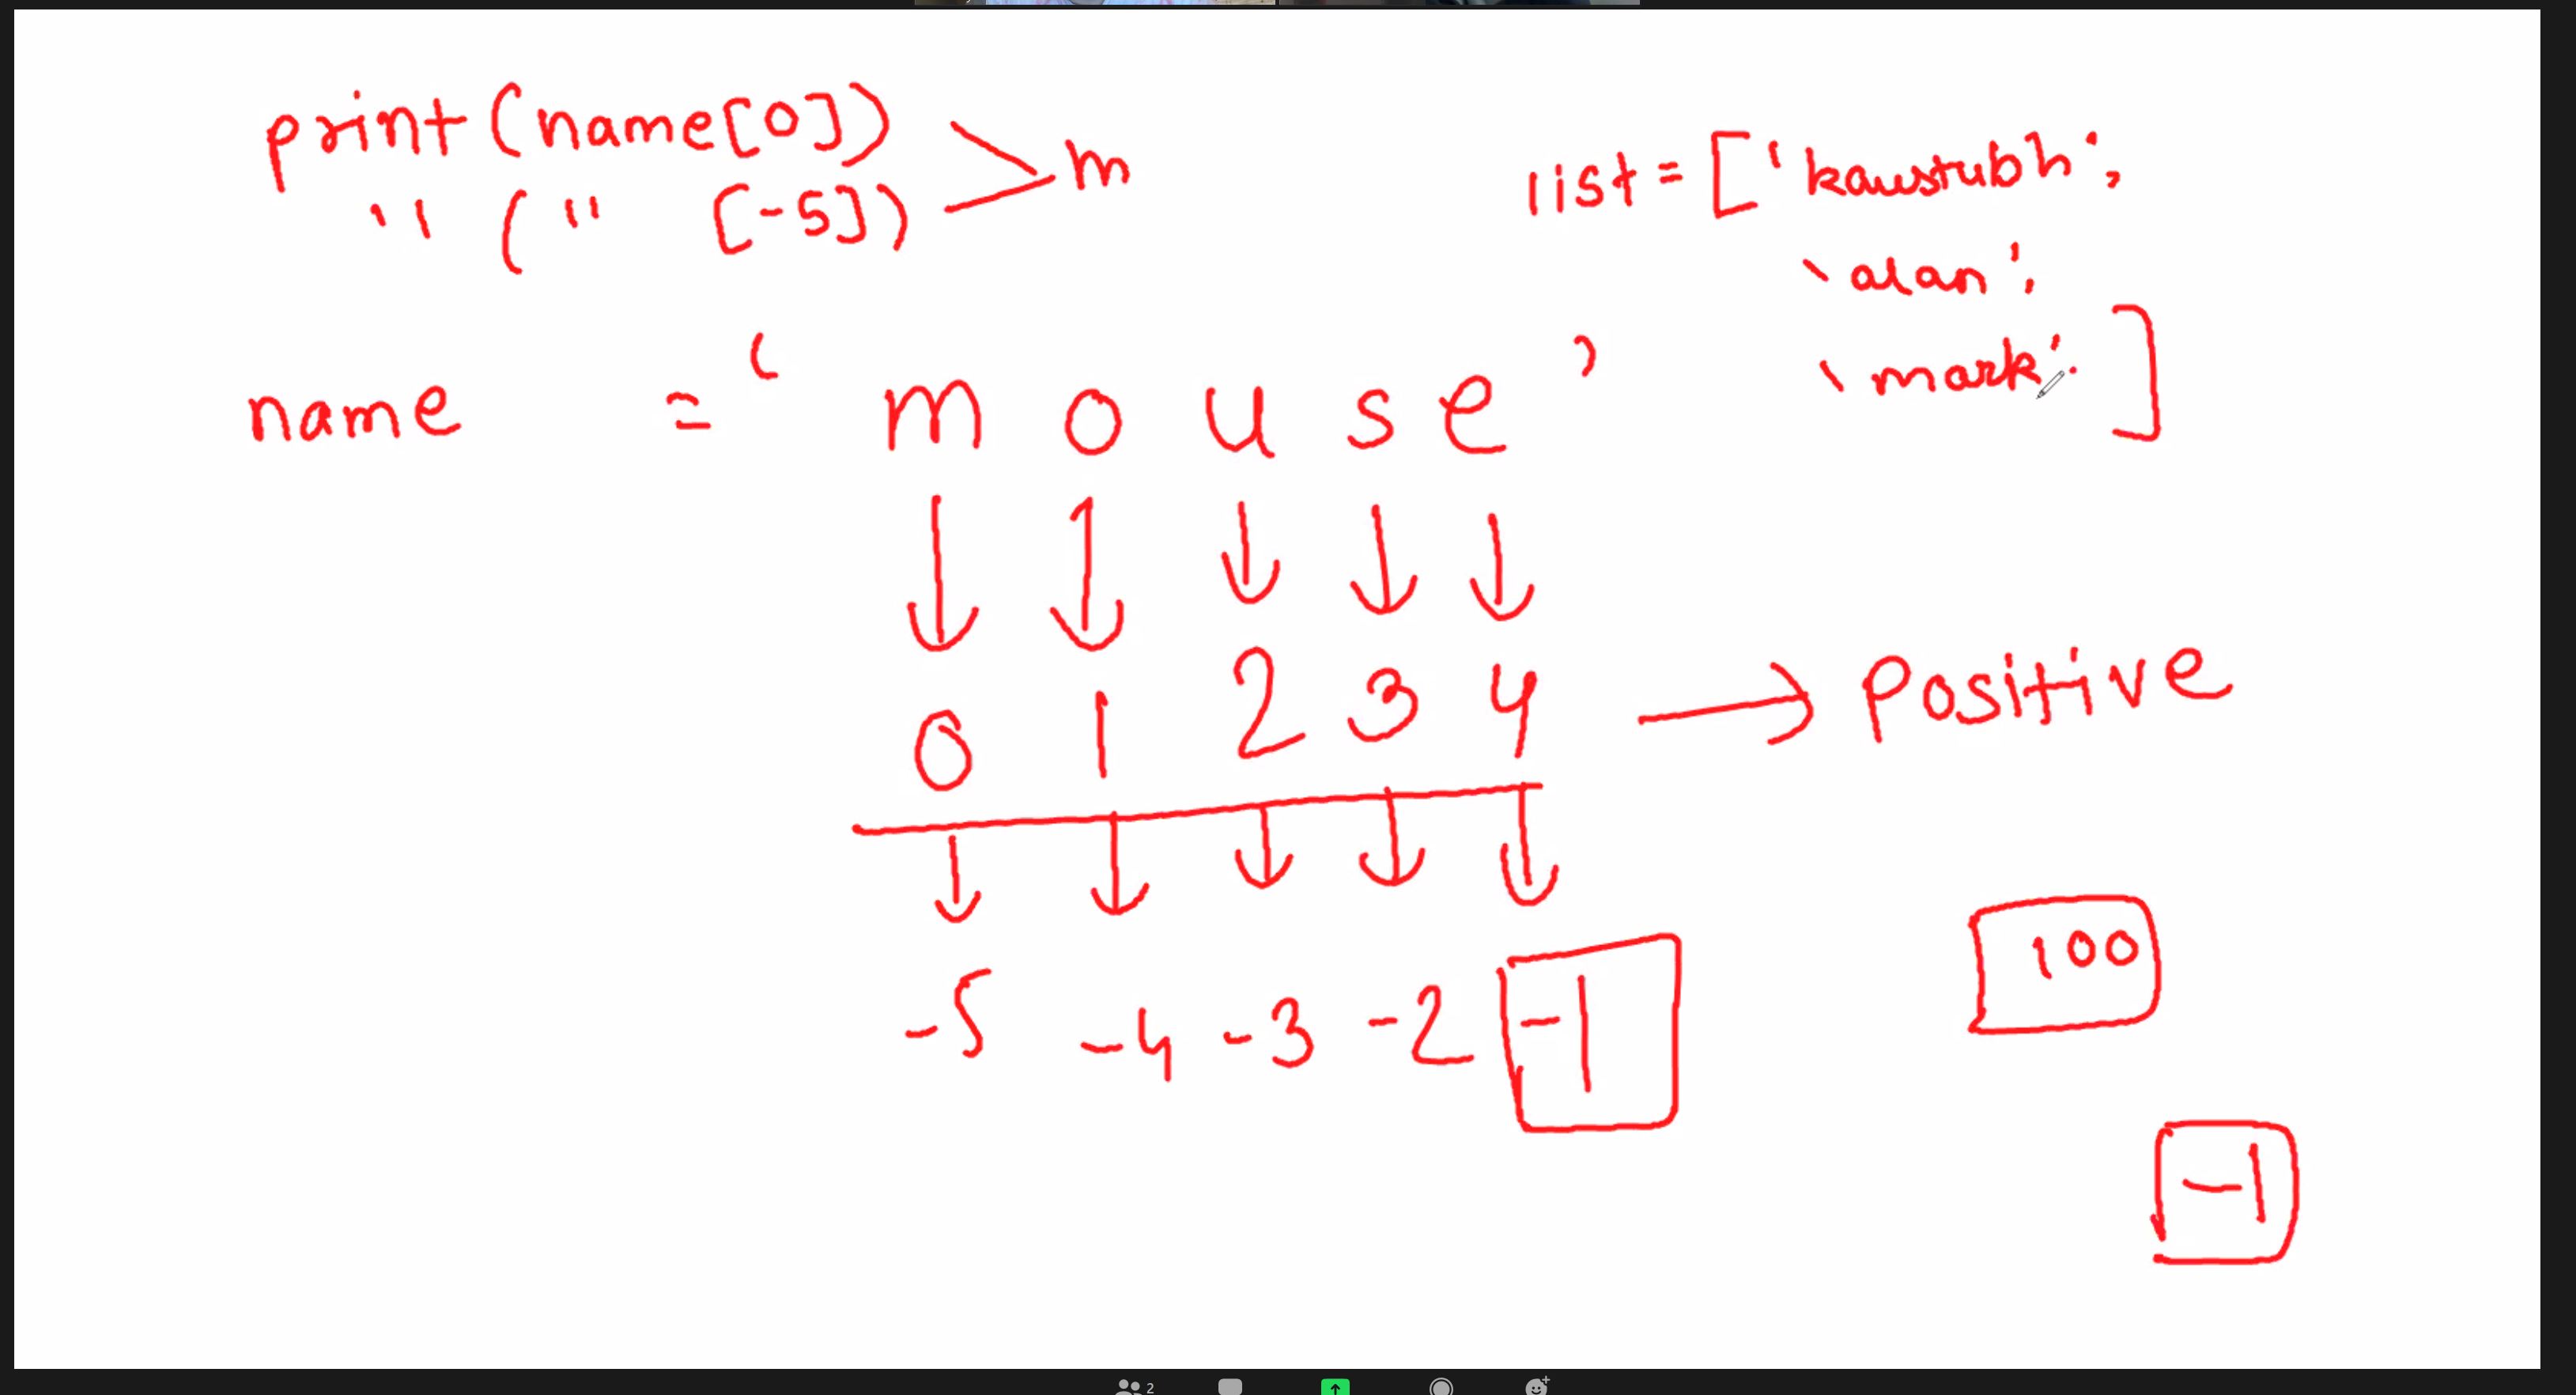 print(name[0])
" (" [-5]) > m
list = ['kaustubh',
'alan',
'mark'.]
name = 'mouse'
0 1 2 3 4 → positive
-5 -4 -3 -2 -1
100
-1
2